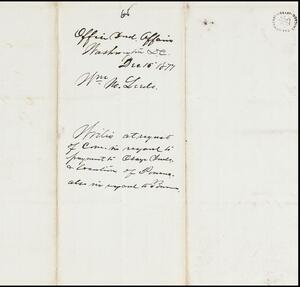 Office Ind. Affairs
Washington D.C.
Dec 15 1877
Wm M. Leeds.
Writes at request
of Com. in regard to
payment to Osage Inds.
& location of Poncas.
also in regard to